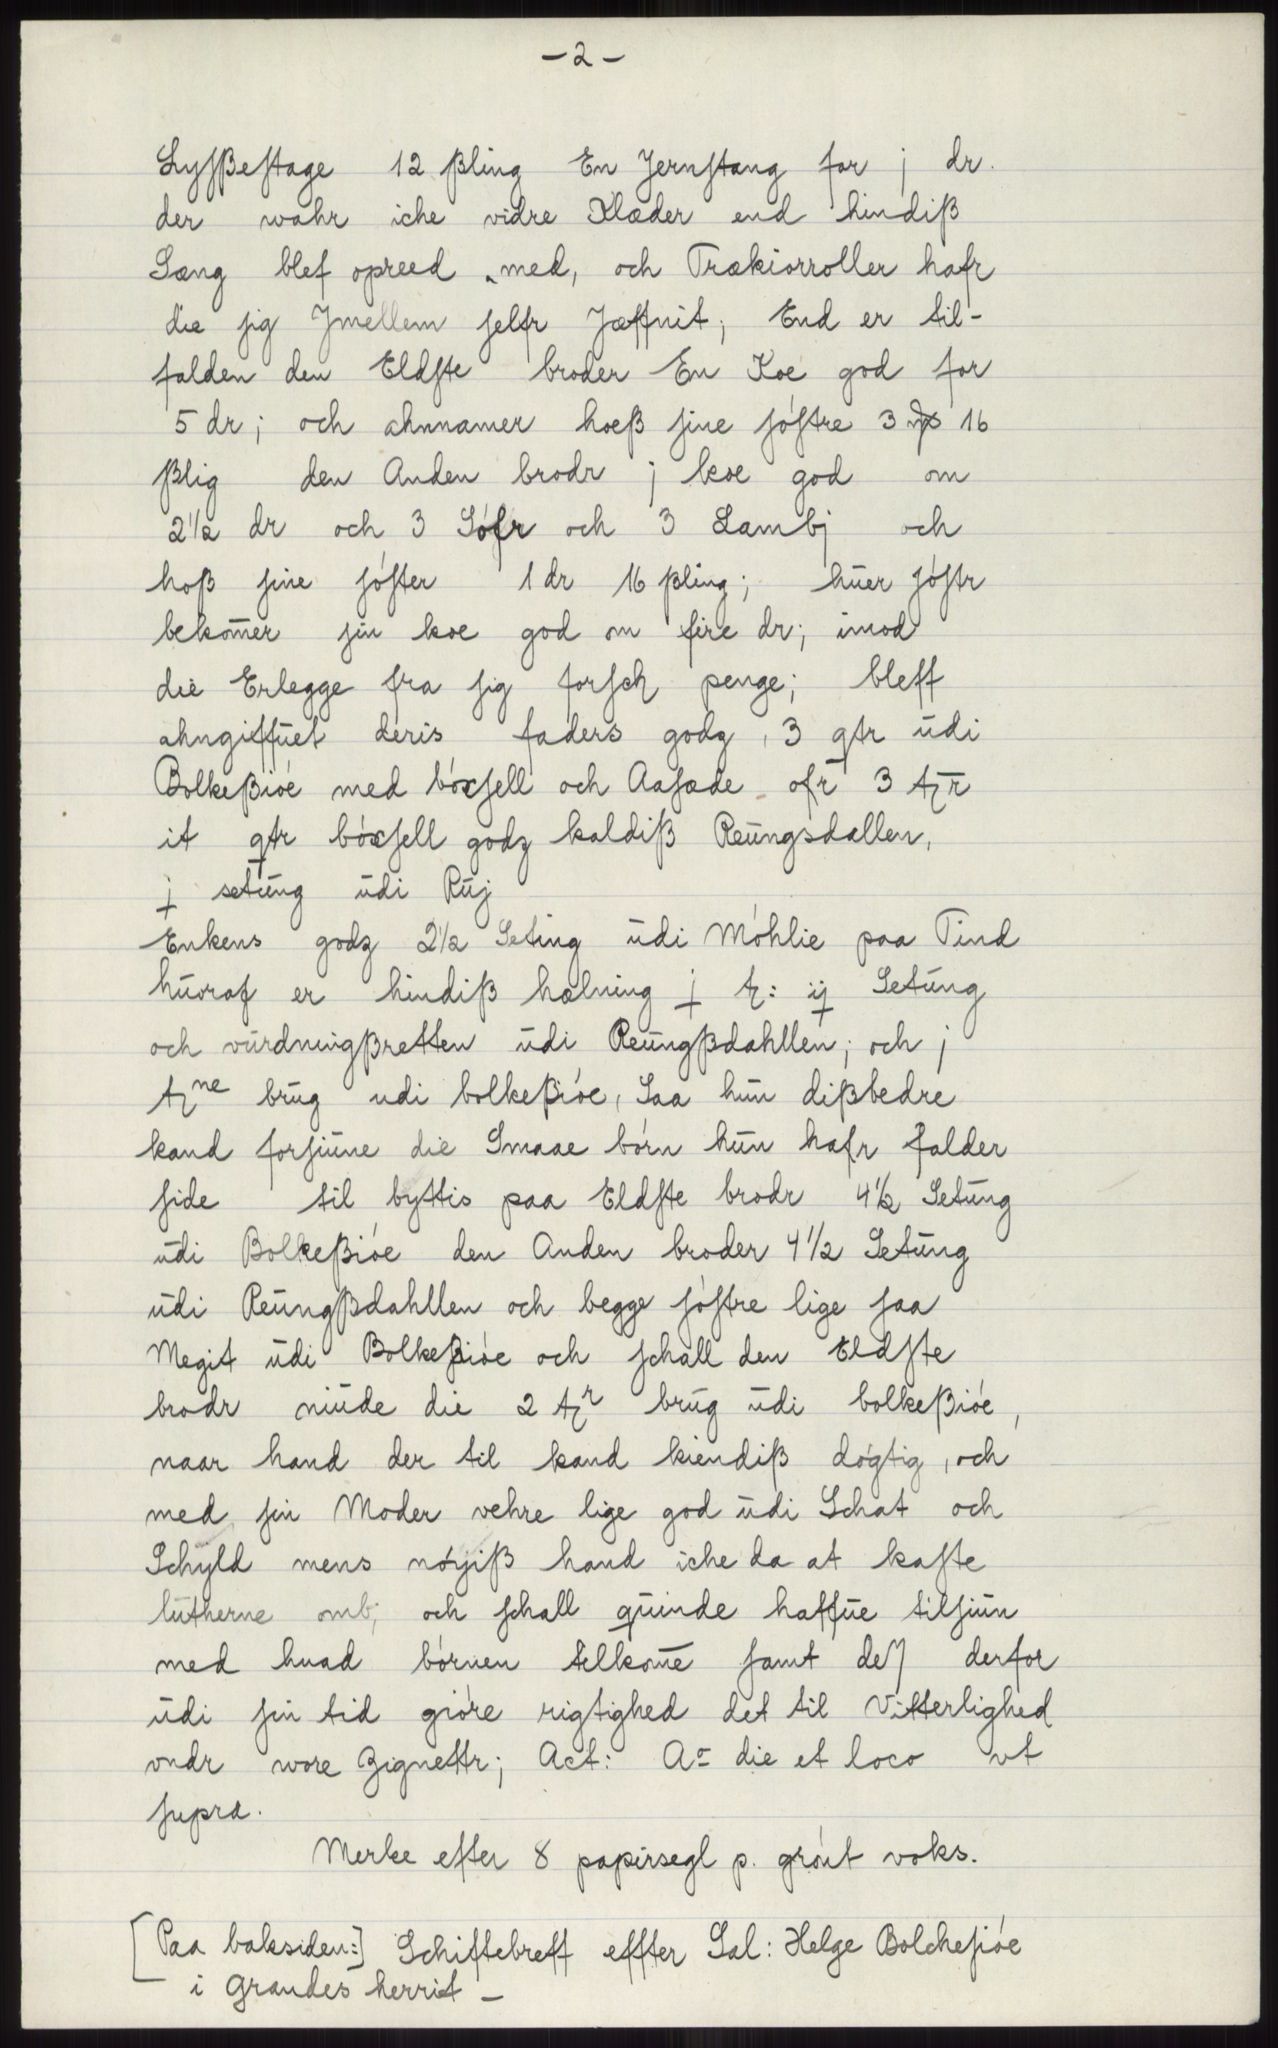 - 2 -
Lyßestage 12 ßling En Jernstang for j dr.
der wahr iche vidre Klæder end hindiß
Sæng blef opreed med, och Trækiorroller hafr
die sig Jmellem selfr Jæffnit; End er til-
falden den Eldste broder En Koe god for
5 dr; och ahnnamer hoeß sine sóstre 3 16
ßlig den Anden brodr j koe god om
2 1/2 dr och 3 Sófr och 3 Lambj och
hoß sine sóster 1 dr 16 ßling; hŭer sóstr
bekom̄er sin koe god om fire dr; imod
die Erlegge fra sig forsch penge; bleff
ahngiffŭet deris faders godz, 3 qtr ŭdi
Bolkeßióe med bóxsell och Aasæde ofr 3 tꝫr
it qtr bóxsell godz kaldiß Reŭngsdallen,
j setŭng ŭdi Rŭj
Enkens godz 2 1/2 Seting ŭdi Móhlie paa Tind
hŭoraf er hindiß hælning j tꝫ: ij Setŭng
och vŭrdningßretten ŭdi Reŭngßdahllen; och j
tꝫne brŭg udi bolkeßióe, Saa hŭn dißbedre
kand forsiŭne die Smaae bórn hŭn hafr falder
side til byttis paa Eldste brodr 4 1/2 Setŭng
ŭdi Bolkeßióe den Anden broder 4 1/2 Setŭng
ŭdi Reŭngßdahllen och begge sóstre lige saa
Megit ŭdi Bolkeßióe och schall den Eldste
brodr niŭde die 2 tꝫr brŭg ŭdi bolkeßióe,
naar hand der til kand kiendiß dógtig, och
med sin Moder vehre lige god ŭdi Schat och
Schyld mens nóyiß hand iche da at kaste
lŭtherne omb; och schall qŭinde haffŭe tilsiŭn
med huad bórnen tilkom̄e samt derfor
ŭdi sin tid gióre rigtighed det til Vitterlighed
vndr wore Zignettr; Act: Ao die et loco vt
supra.
Merke efter 8 papirsegl p. grónt voks.
[Paa baksiden:] Schiftebreff effter Sal: Helge Bolchesióe
i Grandes herrit -